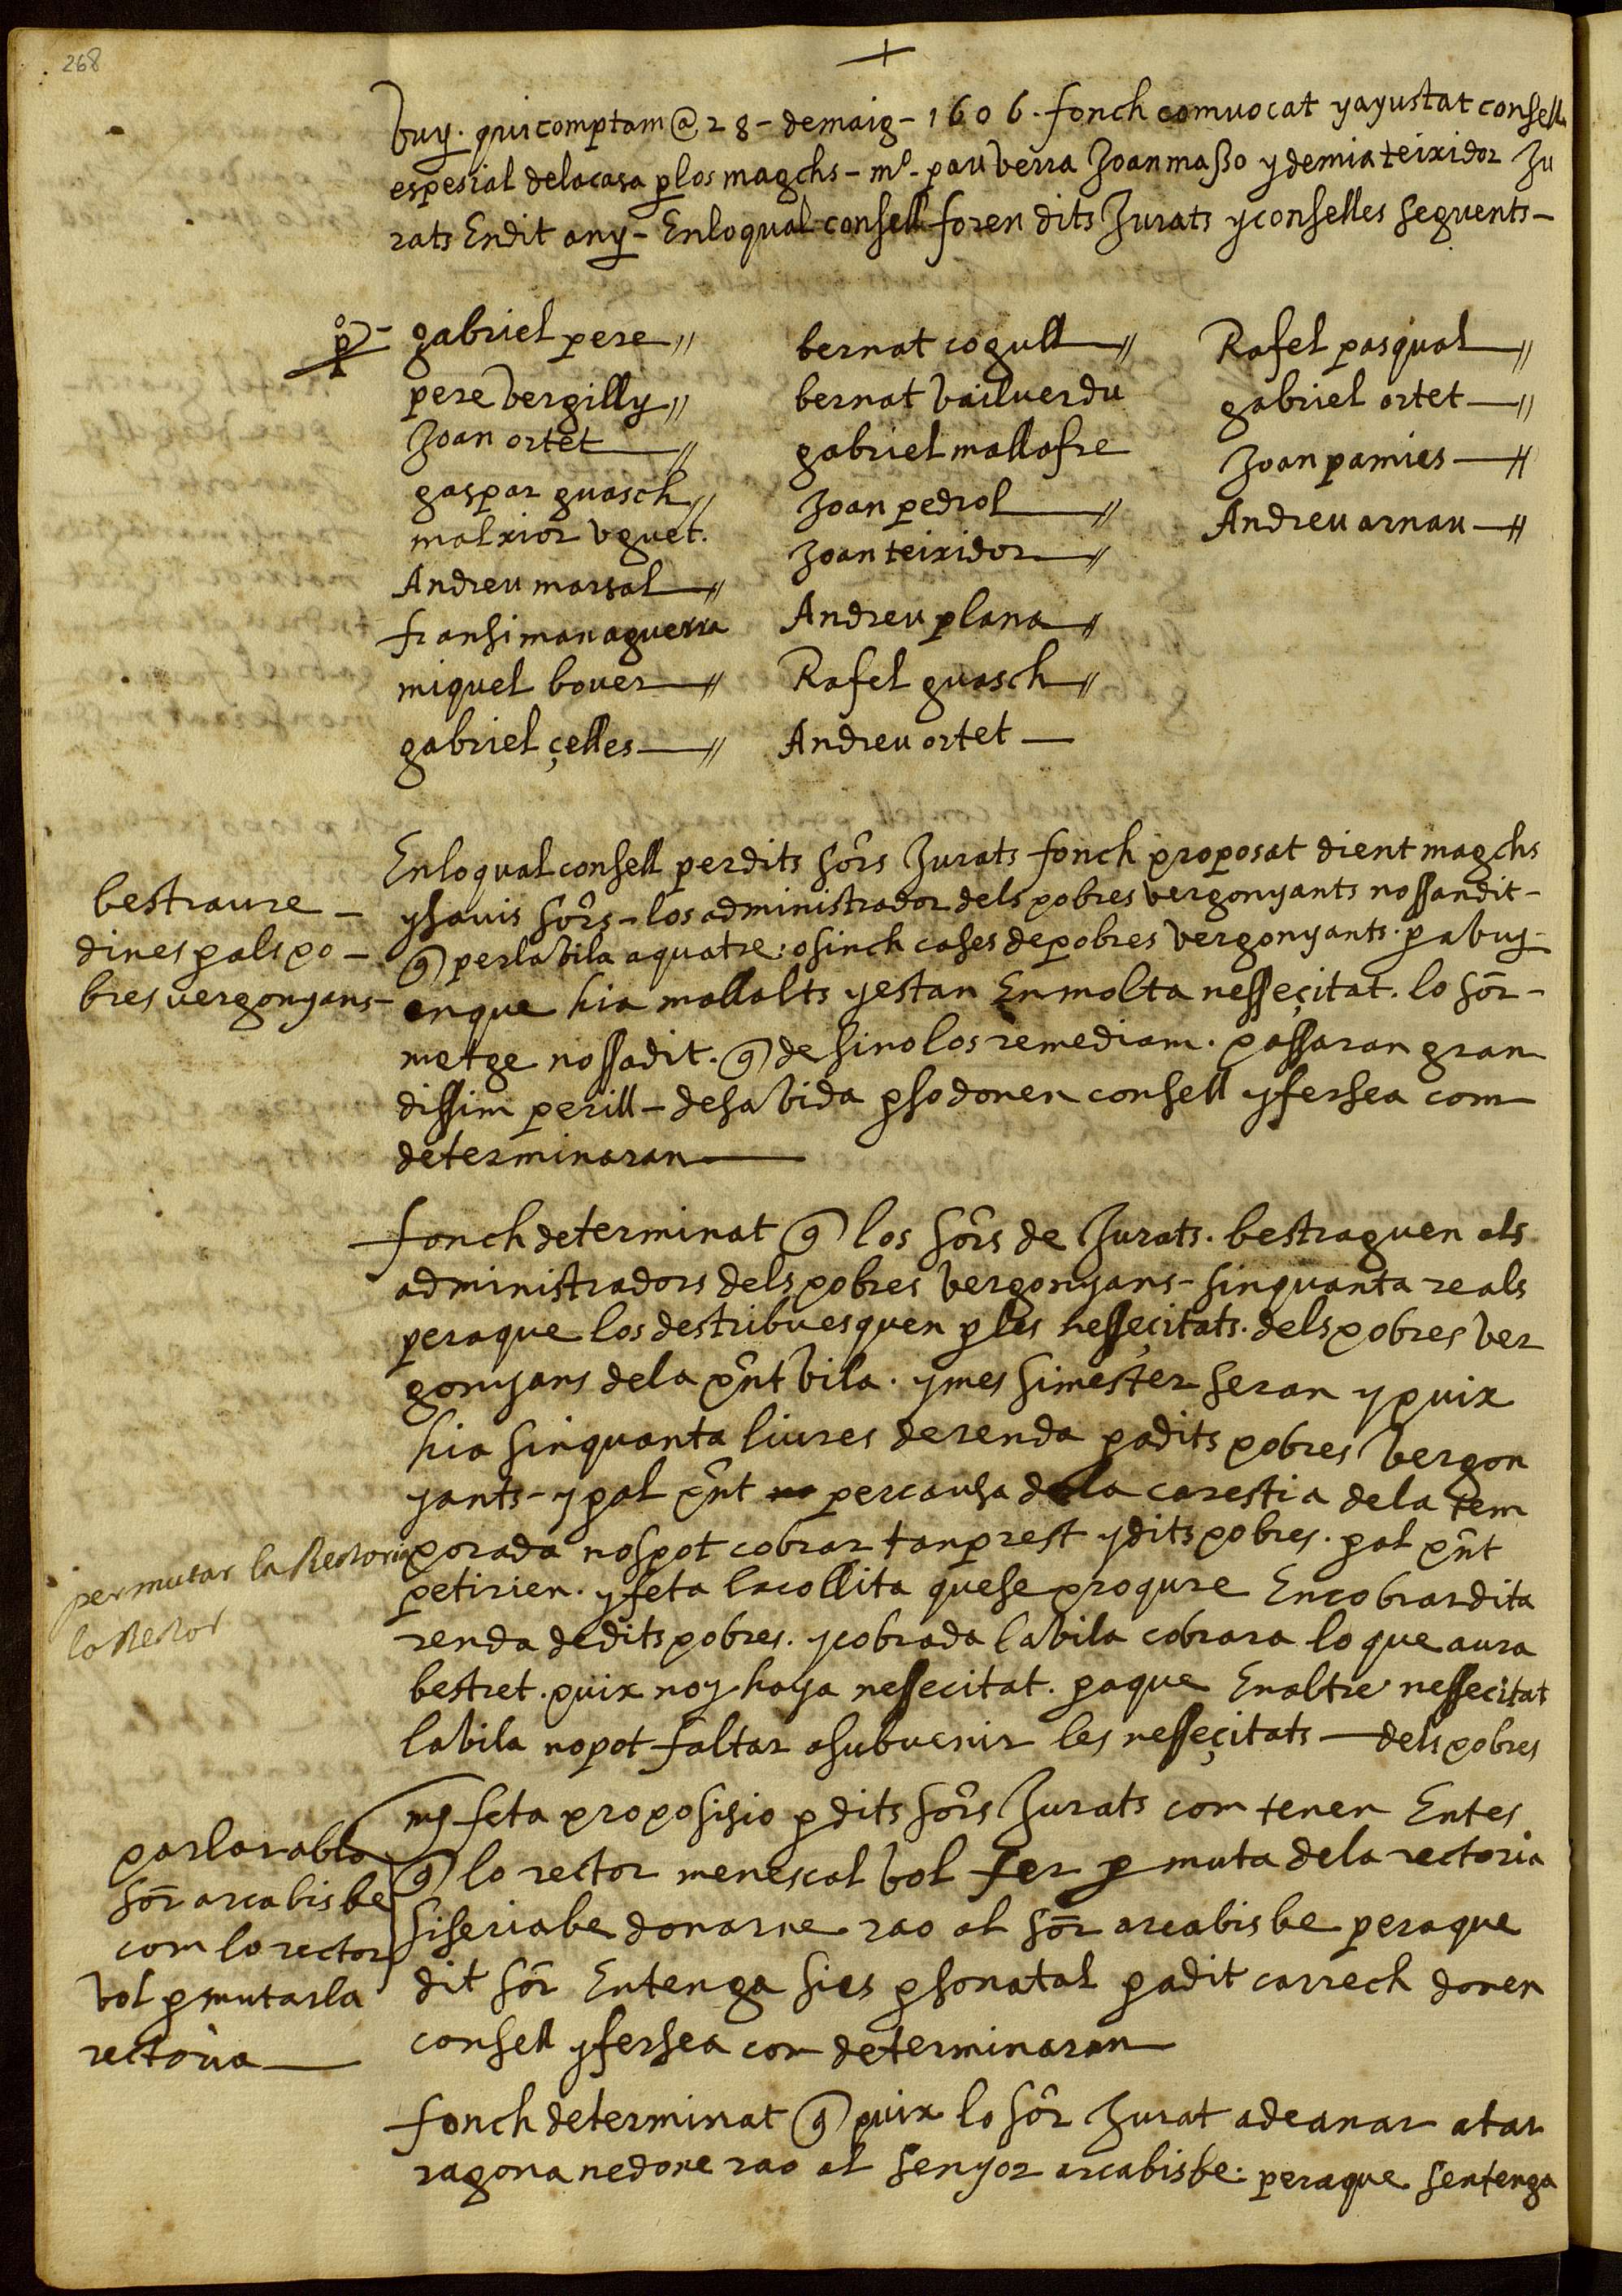 268
+
vuy. qui comptam @ 28 - de maig - 1606. fonch comvocat y ayustat consell
espesial de la casa p los magchs - mº. pau verra Joan masso y demia teixidor Ju
rats En dit any - En lo qual consell foren dits Jurats y conselles seguents -
gabriel pere
pere vergilly
Joan ortet
gaspar guasch
malxior uguet.
Andreu marsal
fransi managuerra
miquel bover
gabriel çelles
bernat cogull
bernat vailverdu
gabriel mallafre
Joan pedrol
Joan teixidor
Andreu plana
Rafel guasch
Andreu ortet
Rafel pasqual
gabriel ortet
Joan pamies
Andreu arnau
bestraure -
dines p als po -
bres vergonyans -
En lo qual consell per dits sors Jurats fonch proposat dient magchs
y savis sors - los administrador dels pobres vergonyants nos san dit -
q per la vila a quatre: o sinch cases de pobres vergonyants. p a vuy -
en que hia mallalts y estan En molta nesseçitat. lo sor -
metge nos sa dit. q de si no los remediam. passaran gran
dissim perill - de sa vida p so donen consell y fer sea com
determinaran
fonch determinat q los sors de Jurats. bestraguen als
administradors dels pobres vergonyans - sinquanta reals
pera que los destribuesquen p les nesseçitats. dels pobres ver
gonyans de la pnt vila. y mes si mester seran y puix
hia sinquanta liures de renda p a dits pobres vergon
yants - y p al pnt per causa de la carestia de la tem
porada nos pot cobrar tan prest y dits pobres. p al pnt
petirien. y feta la collita que se proqure En cobrar dita
renda de dits pobres. y cobrada la vila cobrara lo que aura
bestret. puix noy haya nessecitat. p a que En altre nessecitat
la vila no pot faltar a subvenir les nesseçitats - dels pobres
permutar la Rectoria
lo Rector
parlar ab lo
sor arcabisbe
com lo rector
vol p mutar la
rectoria
mg feta proposisio p dits sors Jurats com tenen Entes
q lo rector menescal vol fer p muta de la rectoria
si seria be donarne rao al sor arcabisbe pera que
dit sor Entenga si es p sona tal p a dit carrech donen
consell y fer sea com determinaran
fonch determinat q puix lo sor Jurat a de anar a tar
ragona ne done rao al senyor arcabisbe: pera que sentenga